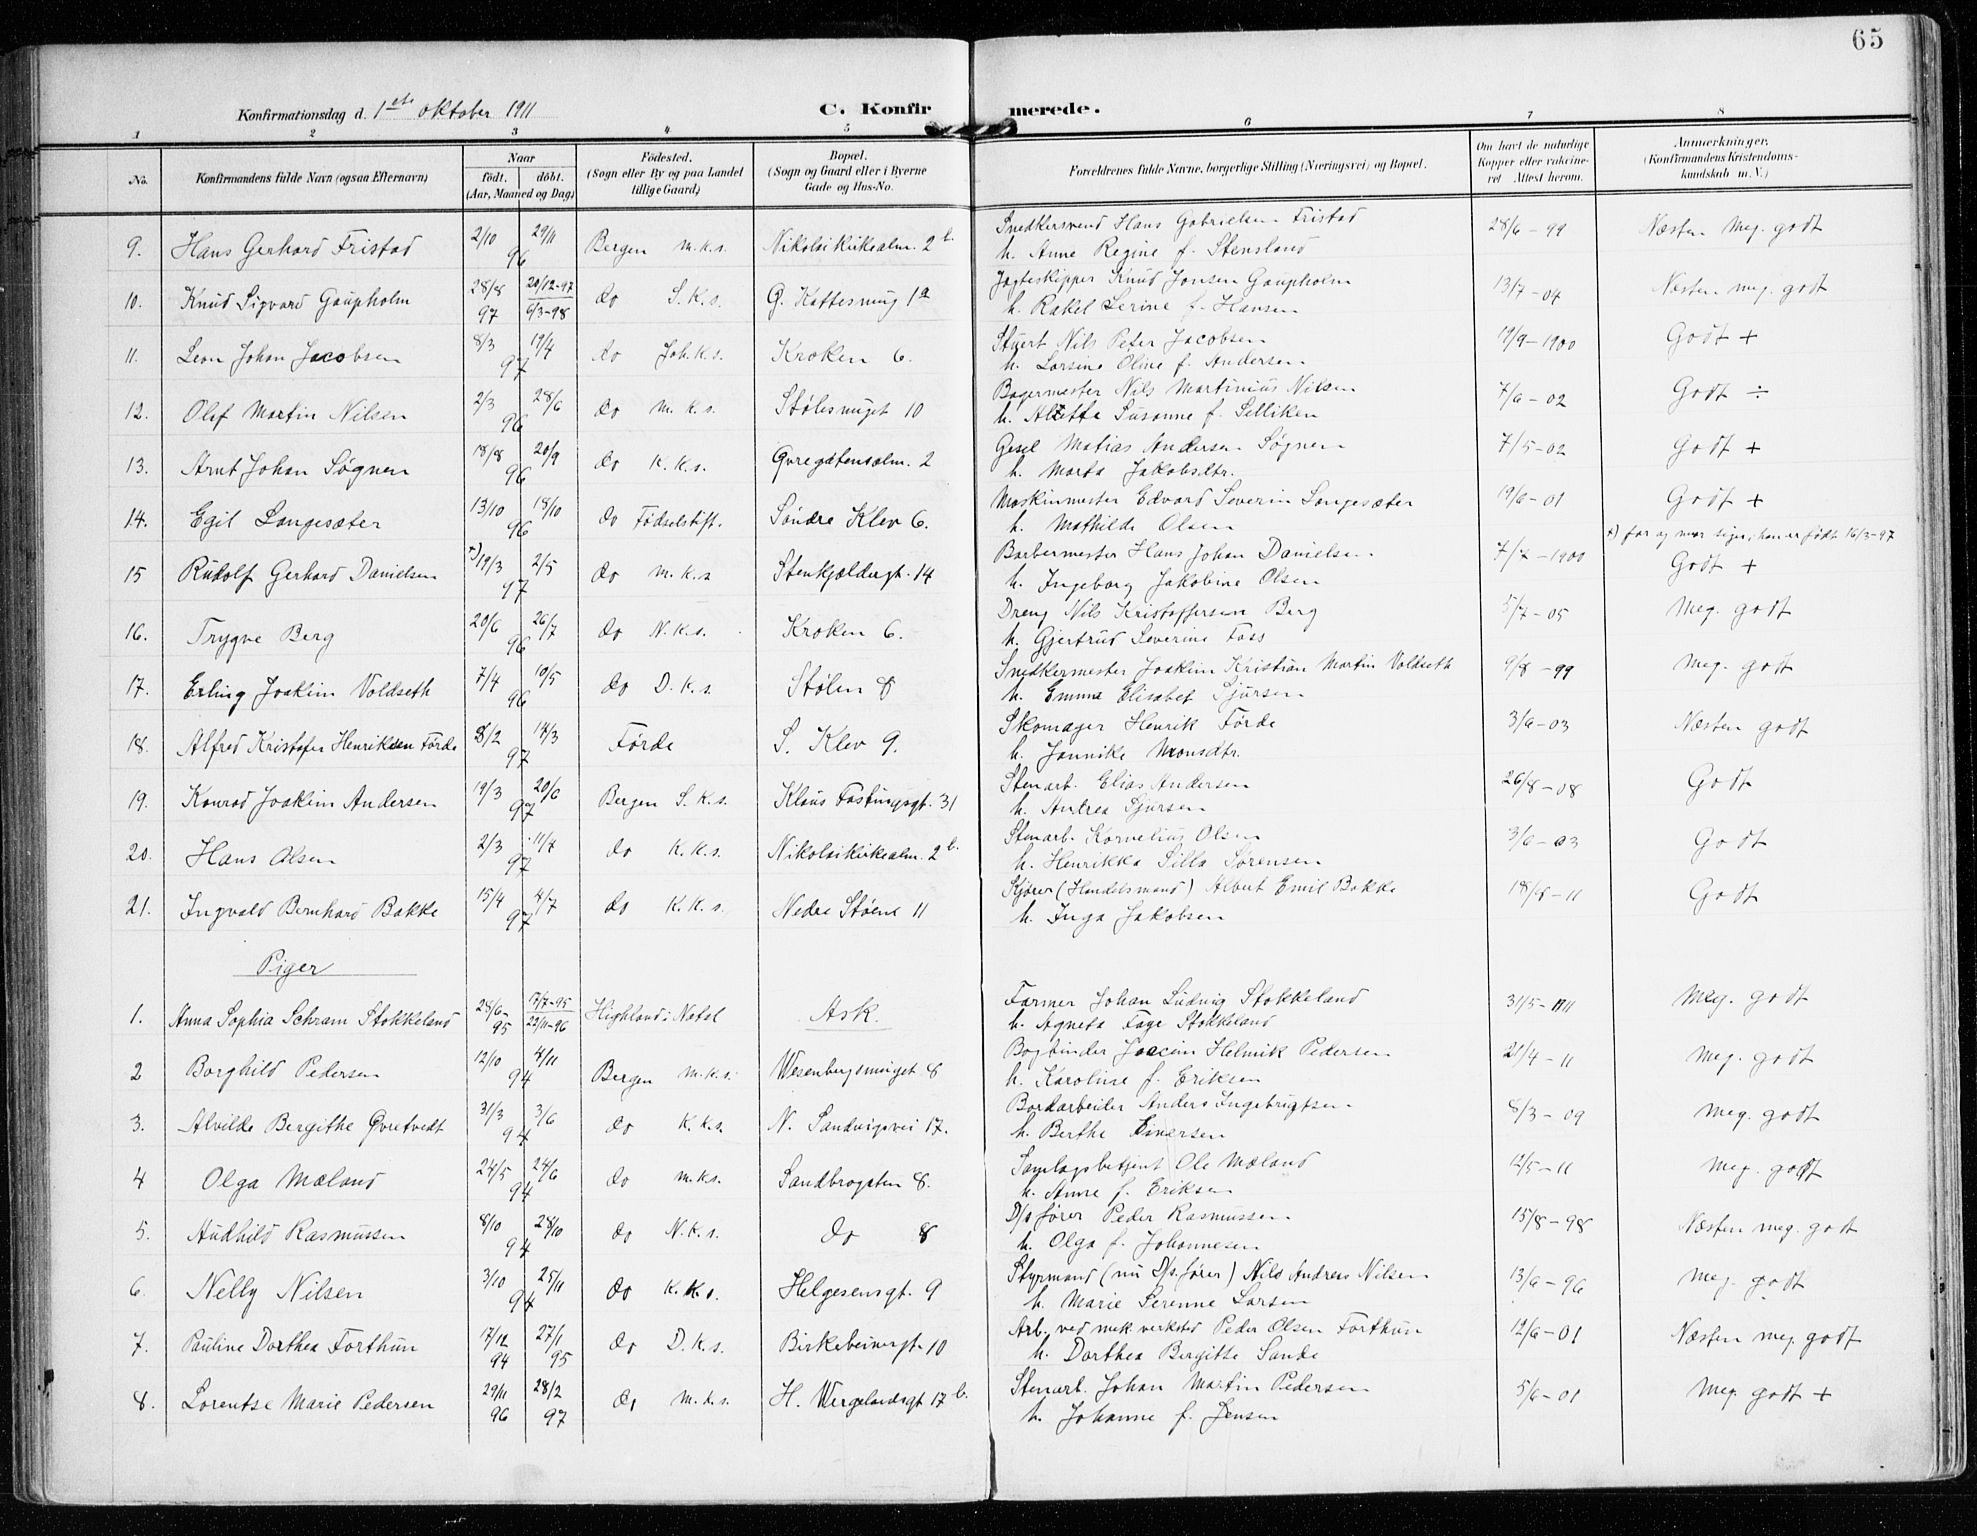 65
Konfirmationsdag d. 1ste oktober 1911 C. Konfirmerede.
1 2 3 4 5 6 7 8
No. Konfirmandens fulde Navn (ogsaa Efternavn) Naar født. døbt. (Aar, Maaned og Dag) Fødested. (Sogn eller By og paa Landet tillige Gaard) Bopæl. (Sogn og Gaard eller i Byerne Gade og Hus-No. Forældrenes fulde Navne, borgerlige Stilling (Næringsvei) og Bopæl. Om havt de naturlige Kopper eller vaccineret Attest herom. Anmerkninger. (Konfirmandens Kristendomskundskab m. V.)
9. Hans Gerhard Fristad 2/10 29/11 96 Bergen m.k.s. Nikolaikirkealm. 2 b. Snedkersvend Hans Gabrielsen Fristad 28/6-99 Næsten meg. godt
h. Anne Regine f. Stensland
10. Knud Sigvard Gaupholm 28/8 97 20/12-97 6/3-98 do S.K.s. G. Kattesmug 1a Jagteskipper Knud Jonsen Gaupholm 13/7-04 Næsten meg. godt
h. Rakel Serine f. Hansen
11. Leon Johan Jacobsen 8/3 19/4 97 do Joh.K.s. Kroken 6. Stuert Nils Peter Jacobsen 19/9-1900 Godt +
h. Larsine Oline f. Andersen
12. Olaf Martin Nilsen 2/3 28/6 96 do m.k.s. Stølesmuget 10 Bagermester Nils Martinius Nilsen 7/6-02 Godt ÷
h. Alette Susanne f. Selliken
13. Arnt Johan Søgnen 18/8 20/9 96 do K.K.s. Øvregatensalm. 2 Gesel Matias Andersen Søgnen 7/5-02 Godt +
h. Marta Jakobsdtr.
14. Egil Langesæter 13/10 18/10 96 do Fødselstift. Søndre Klev 6. Maskinmester Edvard Severin Langesæter 19/6-01 Godt +
h. Mathilde Olsen
x) far og mor siger, han er født 16/3-97
15 Rudolf Gerhard Danielsen x) 19/3 2/5 97 do m.k.s Stenkjældergt. 14 Barbermester Hans Johan Danielsen 7/7-1900 Godt +
h. Ingeborg Jakobine Olsen
16. Trygve Berg 20/6 26/7 96 do N.K.s. Kroken 6. Dreng Nils Kristoffersen Berg 5/7-05 Meg. godt
h. Gjertrud Severine Foss
17. Erling Joakim Voldseth 7/4 10/5 96 do D.K.s. Stølen 8 Snedkermester Joakim Kristian Martin Voldseth 9/8-99 Meg. godt
h. Emma Elisabet Sjursen
18. Alfred Kristofer Henriksen Førde 8/2 14/3 97 Førde S. Klev 9. Skomager Henrik Førde 3/6-03 Næsten godt
h. Jannike Monsdtr.
19. Konrad Joakim Andersen 19/3 20/6 97 Bergen S.K.s. Klaus Fastingsgt. 31 Stenarb. Elias Andersen 26/8-08 Godt
h. Andrea Sjursen
20. Hans Olsen 2/3 11/7 97 do K.K.s. Nikolaikirkealm. 2 b. Stenarb. Kornelius Olsen 3/6-03 Godt
h. Henrikka Silla Sørensen
21. Ingvald Bernhard Bakke 15/4 4/7 97 do K.K.s. Nedre Stølen 11 Kjører (Handelsmand) Albert Emil Bakke 18/8-11 Godt
h. Inga Jakobsen
Piger
1. Anna Sophia Schram Stokkeland 28/6-95 7/7-95 22/11-96 Highland i Natal Ask. Farmer Johan Ludvig Stokkeland 31/5-11 Meg. godt
h. Agneta Fage Stokkeland
2 Borghild Pedersen 12/10 4/11 94 Bergen m.k.s. Wesenbergsmuget 8 Bogbinder Joacim Helmik Pedersen 21/4-11 Meg. godt
h. Karoline f. Eriksen
3. Alvilde Bergithe Øvretvedt 31/3 3/6 94 do K.K.s. N. Sandvigsvei 17. Bordarbeider Anders Ingebrigtsen 8/3-09 Meg. godt
h. Berthe Einersen
4 Olga Mæland 24/5 24/6 94 do m.k.s. Sandbrogaten 8. Samlagsbetjent Ole Mæland 12/5-11 Meg. godt
h. Anne f. Eriksen
5. Audhild Rasmussen 8/10 28/10 94 do N.K.s. do 8 D/s fører Peder Rasmussen 15/8-98 Næsten meg. godt
h. Olga f. Johannesen
6. Nelly Nilsen 3/10 25/11 94 do K.K.s. Helgesensgt. 9 Styrmand (nu D/s. fører) Nils Andreas Nilsen 13/6-96 Meg. godt
h. Marie Serenne Larsen
7. Pauline Dorthea Forthun 17/12 94 27/1 95 do D.K.s. Birkebeinergt. 10 Arb. ved mek. verksted Peder Olsen Forthun 12/6-01 Næsten meg. godt
h. Dorthea Bergitte Sande
8. Lorentse Marie Pedersen 29/11 96 28/2 97 do m.k.s. H. Wergelandsgt 17 b. Stenarb. Johan Martin Pedersen 5/6-01 Meg. godt +
h. Johanne f. Jensen